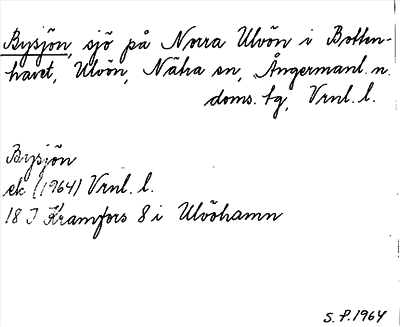 Bysjön, sjö på Norra Ulvön i Botten-
havet, Ulvön, Näha sn, Ångermanl. n.
doms. tg, Vrnl. l.
Bysjön
ek (1964) Vrnl. l.
18 J Kramfors 8 i Ulvöhamn
S. P. 1964